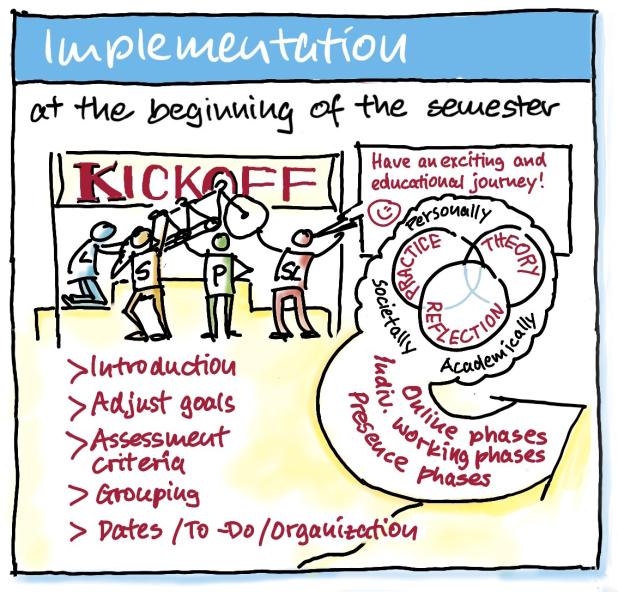 Implementation
at the beginning of the semester
KICKOFF
Have an exciting and
educational journey!
L
S
P
SL
Personally
PRACTICE
THEORY
REFLECTION
Societally
Academically
>Introduction
>Adjust goals
>Assessment
criteria
>Grouping
> Dates /To-Do/Organization
Online phases
Indiv. working phases
Presence phases